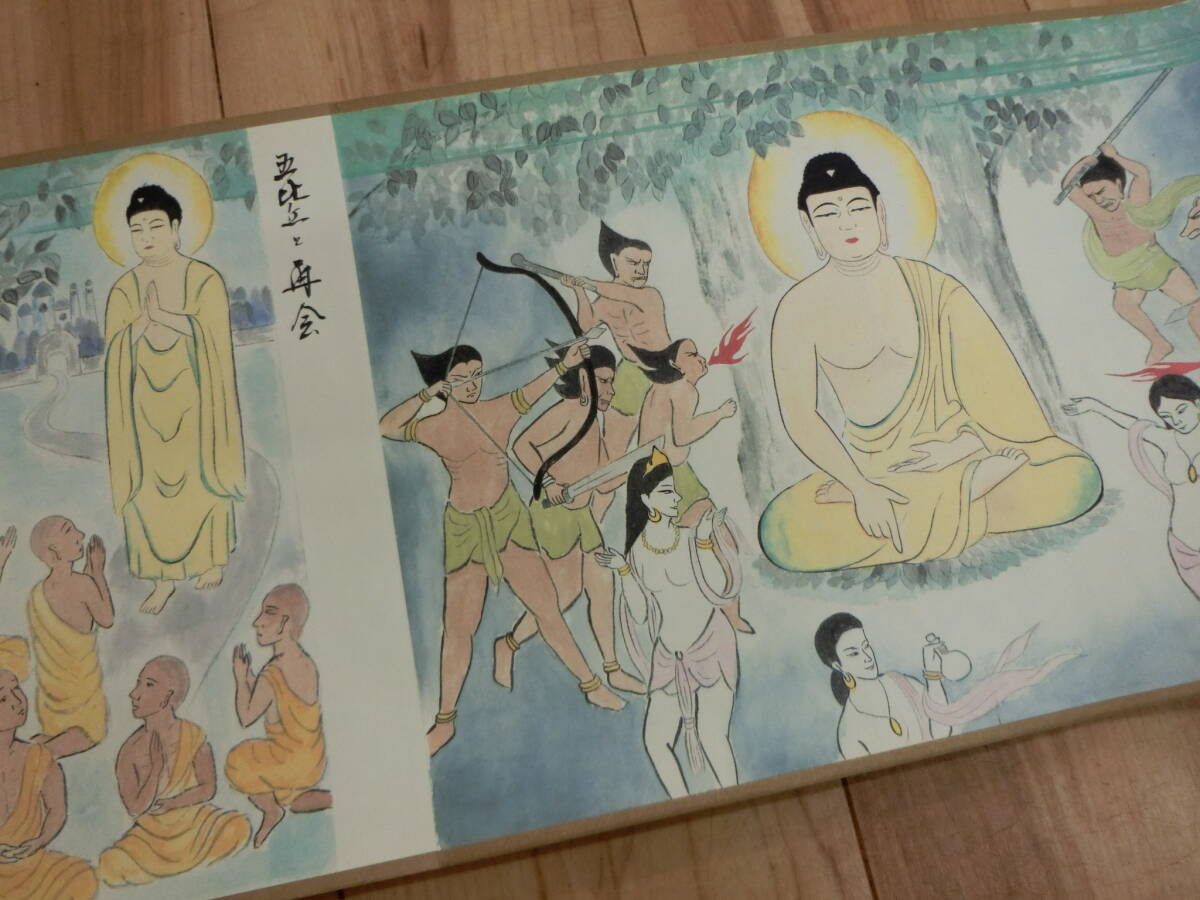 五比丘と再会